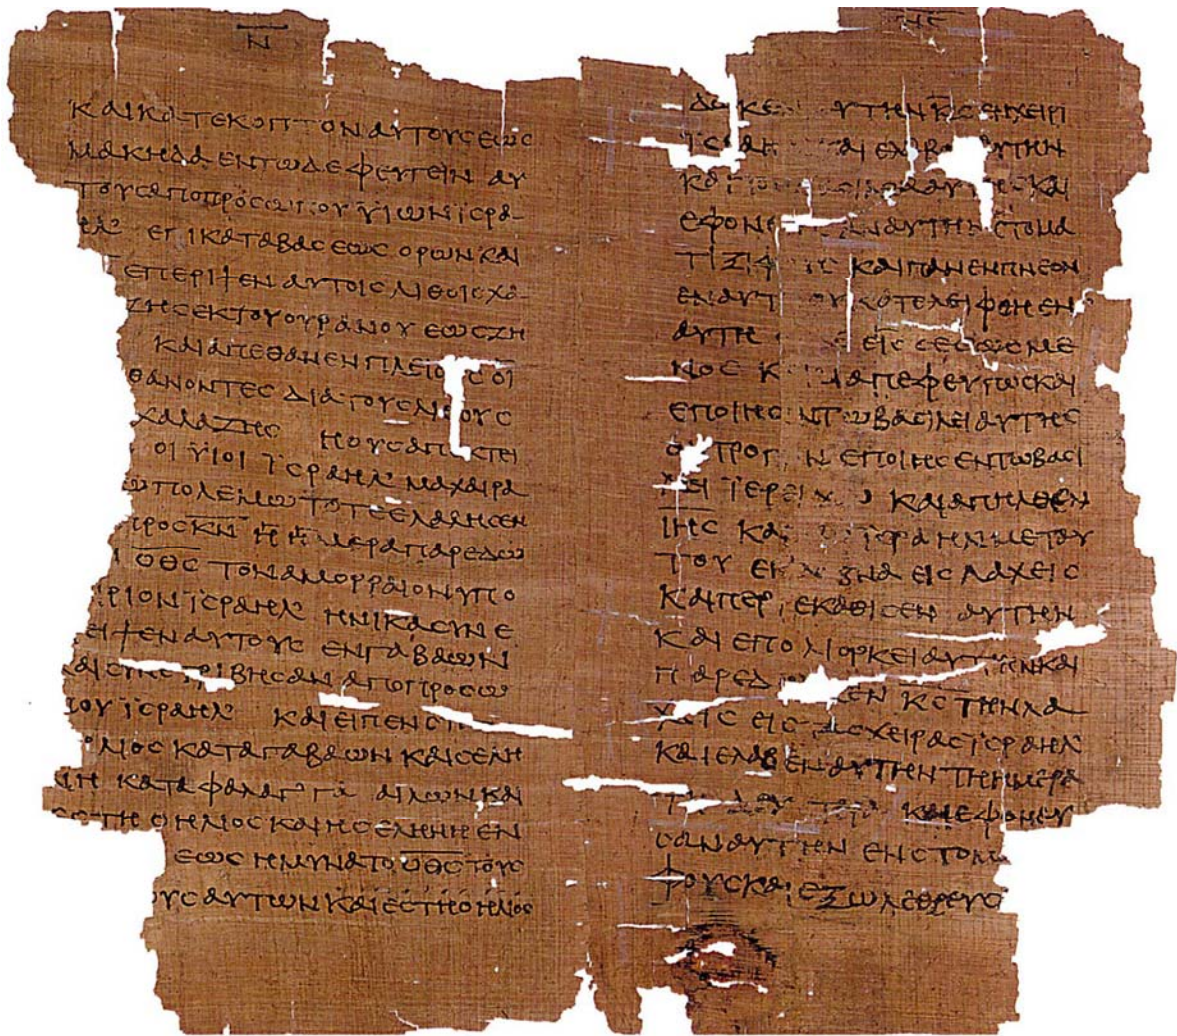 Ν
ΚΑΙΚΑΤΕΚΟΠΤΟΝΑΥΤΟΥΣΕΩΣ
ΜΑΚΗΔΑ ΕΝΤΩΔΕΦΕΥΓΕΙΝ ΑΥ
ΤΟΥΣΑΠΟΠΡΟΣΩΠΟΥ ΥΙΩΝΙΣΡΑ
ΗΛ ΕΠΙΚΑΤΑΒΑΣΕΩΣ ΟΡΩΝΚΑΙ
ΕΠΕΡΙΨΕΝ ΑΥΤΟΙΣ ΛΙΘΟΙΣΧΑ
ΖΗΣΕΚΤΟΥΟΥΡΑΝΟΥ ΕΩΣΖΗ
ΚΑΙΑΠΕΘΑΝΕΝΠΛΕΙΟΥΣΟΙ
ΘΑΝΟΝΤΕΣ ΔΙΑΤΟΥΣΛΙΘΟΥΣ
ΧΑΛΑΖΗΣ ΗΟΥΣΑΠΕΚΤΕΙ
ΟΙ ΥΙΟΙ ΙΣΡΑΗΛ ΜΑΧΑΙΡΑ
ΠΟΛΕΜΩ ΤΟΤΕΕΛΑΛΗΣΕΝ
ΠΡΟΣΚΝ Η ΗΜΕΡΑΠΑΡΕΔΩ
ΟΘΣ ΤΟΝΑΜΟΡΡΑΙΟΝΥΠΟ
ΡΙΟΝ ΙΣΡΑΗΛ ΗΝΙΚΑΣΥΝΕ
ΕΙΨΕΝΑΥΤΟΥΣ ΕΝΓΑΒΑΩΝ
ΚΑΙΣΥΝΕΤΡΙΒΗΣΑΝ ΑΠΟΠΡΟΣΩ
ΠΟΥ ΙΣΡΑΗΛ ΚΑΙΕΙΠΕΝ
ΛΙΟΣ ΚΑΤΑΓΑΒΑΩΝ ΚΑΙΣΕΛΗ
ΝΗ ΚΑΤΑΦΑΛΑΓΓΑ ΑΙΛΩΝΚΑΙ
ΕΣΤΗ ΟΗΛΙΟΣ ΚΑΙΗΣΕΛΗΝΗ ΕΝ
ΕΩΣ ΗΜΥΝΑΤΟ ΟΘΣ ΤΟΥΣ
ΟΥΣ ΑΥΤΩΝ ΚΑΙΕΣΤΗΟΗΛΙΟΣ
ΑΥΤΗΝ ΚΣ ΕΝΧΕΙΡΙ
ΑΥΤΗΝ
ΚΑΙ
ΑΥΤΗΝ ΣΤΟΜΑ
ΤΙΞΙΦΟΥΣ ΚΑΙΠΑΝΕΝΠΝΕΟΝ
ΕΝΑΥΤ ΟΥΚΑΤΕΛΕΙΦΘΗΕΝ
ΑΥΤΗ ΕΙΣ ΣΕΣΩΣΜΕ
ΝΟΣ Κ ΔΙΑΠΕΦΕΥΓΩΣΚΑΙ
ΕΠΟΙΗΣ ΝΤΩΒΑΣΙΛΕΙΑΥΤΗΣ
Ο ΤΡΟΠ Ν ΕΠΟΙΗΣΕΝΤΩΒΑΣΙ
ΛΕΙ ΙΕΡΕΙΧ ΚΑΙΑΠΗΛΘΕΝ
ΙΗΣ ΚΑΙ ΙΣΡΑΗΛΜΕΤΑΥ
ΤΟΥ ΕΚ ΒΝΑ ΕΙΣ ΛΑΧΕΙΣ
ΚΑΙΠΕΡΙΕΚΑΘΙΣΕΝ ΑΥΤΗΝ
ΚΑΙ ΕΠΟΛΙΟΡΚΕΙΑΥΤΗΝΚΑΙ
ΠΑΡΕΔ ΚΕΝ ΚΣ ΤΗΝΛΑ
ΧΕΙΣ ΕΙΣ ΤΑΣΧΕΙΡΑΣΙΣΡΑΗΛ
ΚΑΙΕΛΑΒΕΝΑΥΤΗΝ ΤΗΗΜΕΡΑ
ΚΑΙΕΦΟΝΕΥ
ΣΑΝΑΥΤΗΝ ΕΝΣΤΟΜ
ΦΟΥΣΚΑΙΕΞΩΛΕΘΡΕΥΣ